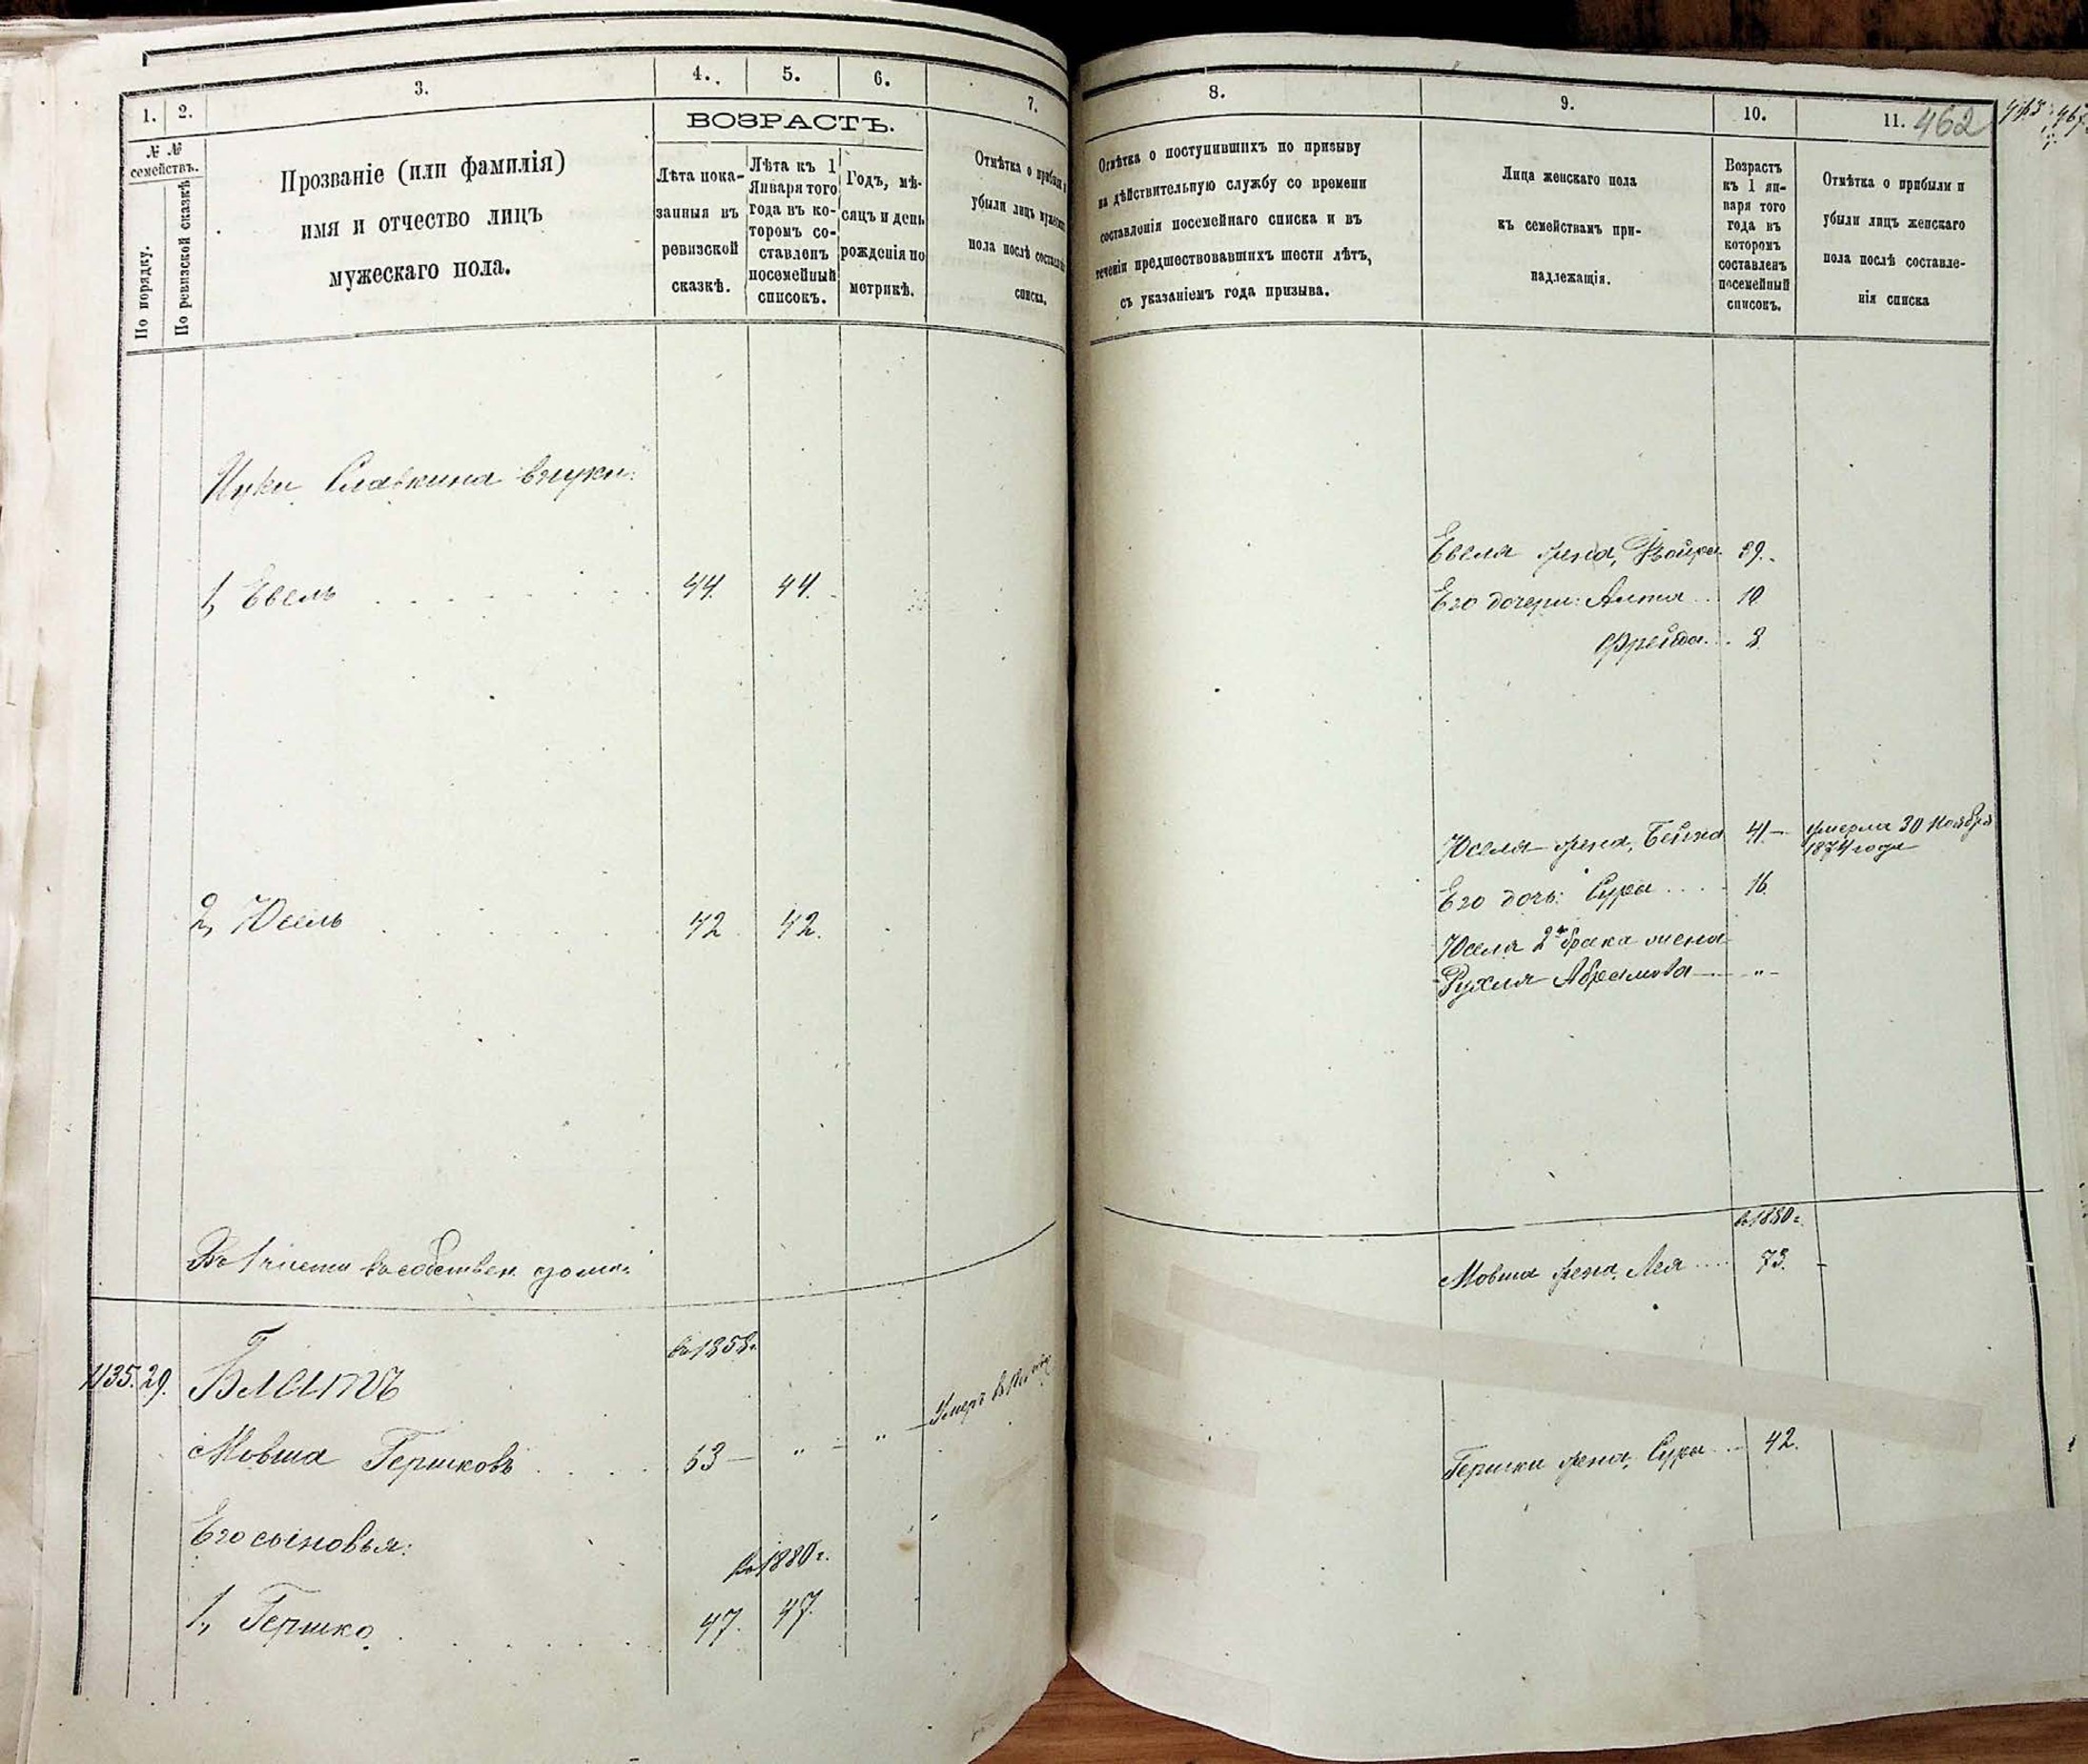 1.
2.
3.
4.
5.
6.
7.
№ №
семействъ.
По порядку.
По ревизской сказкѣ
Прозваніе (или фамилія)
имя и отчество лицъ
мужескаго пола.
ВОЗРАСТЪ.
Лѣта пока-
занныя въ
ревизской
сказкѣ.
Лѣта къ 1
Января того
года въ ко-
торомъ со-
ставленъ
посемейный
списокъ.
Годъ, мѣ-
сяцъ и день
рожденія по
метрикѣ.
Отмѣтка о прибыли и
убыли лицъ мужескаго
пола послѣ составленія
списка.
Ицки Славкина внуки:
1, Евель
44.
44.
2, Юсель
42
42.
Во 1 части въ собствен. домѣ
въ 1858 г.
1135.
29.
Блатъ
Мовша Гершковъ
53
"
"
Умеръ въ
Его сыновья:
въ 1880 г.
1, Гершко
47.
47.
8.
9.
10.
11.
462
Отмѣтка о поступившихъ по призыву
на дѣйствительную службу со времени
составленія посемейнаго списка и въ
теченіи предшествовавшихъ шести лѣтъ,
съ указаніемъ года призыва.
Лица женскаго пола
къ семействамъ при-
надлежащія.
Возрастъ
къ 1 ян-
варя того
года въ
которомъ
составленъ
посемейный
списокъ.
Отмѣтка о прибыли и
убыли лицъ женскаго
пола послѣ составле-
нія списка
Евеля жена,
39.
Его дочери:
10.
Фрейда
8.
Юселя жена, Бейна
41
умерла 30 Ноября
1874 года
Его дочь: Сура
16.
Юселя 2го брака жена
Рухля Абрамова
"
въ 1880 г.
Мовша жена, Лея
73.
Гершки жена, Сура
42.